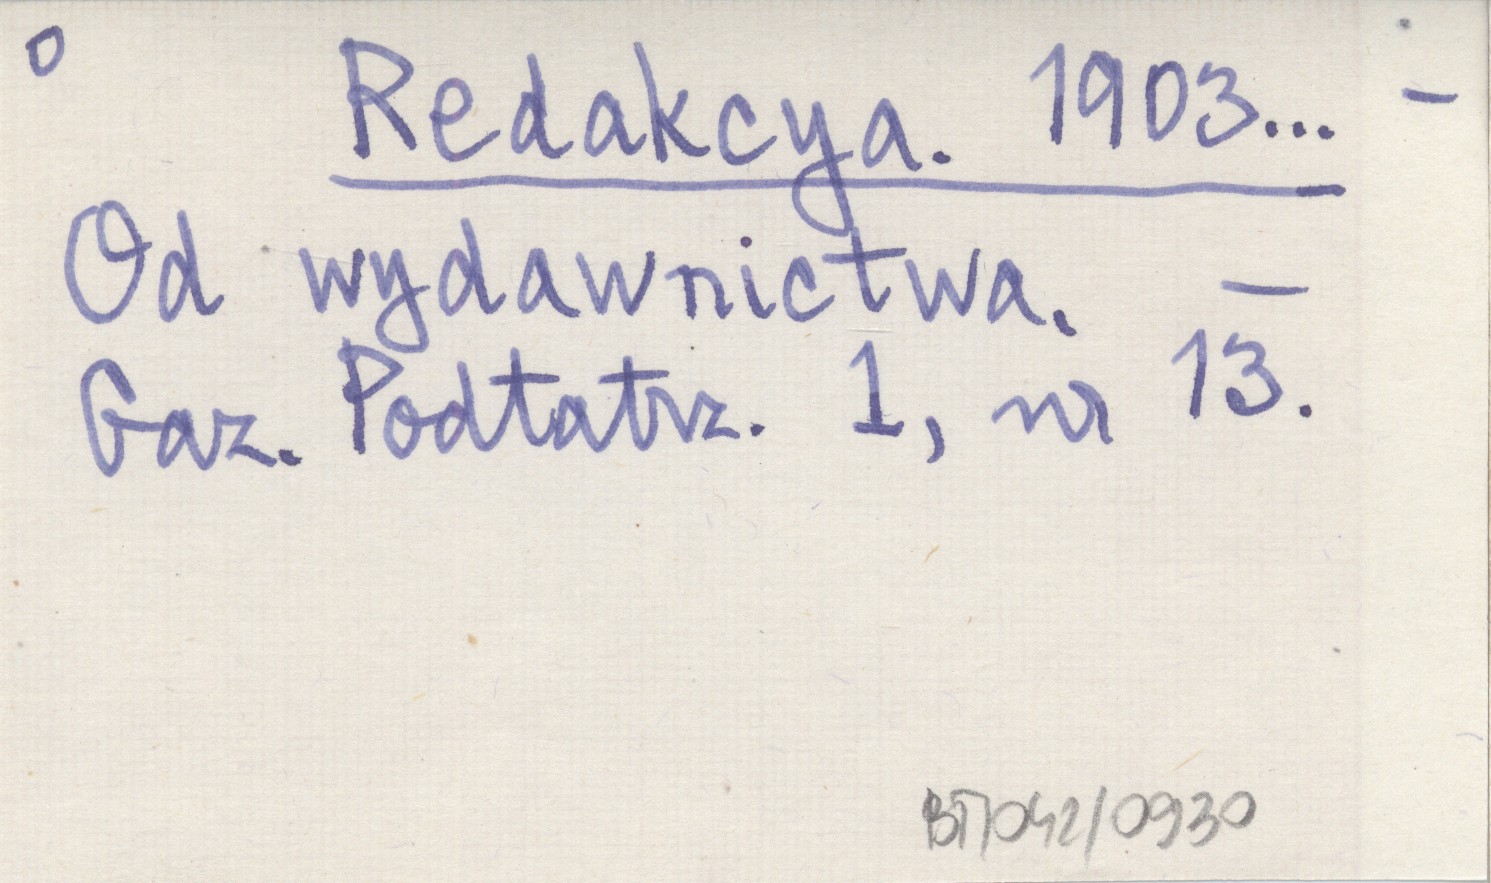 o Redakcya. 1903... -
Od wydawnictwa. —
Gaz. Podtatrz. 1, nr 13.
BT/042/0930